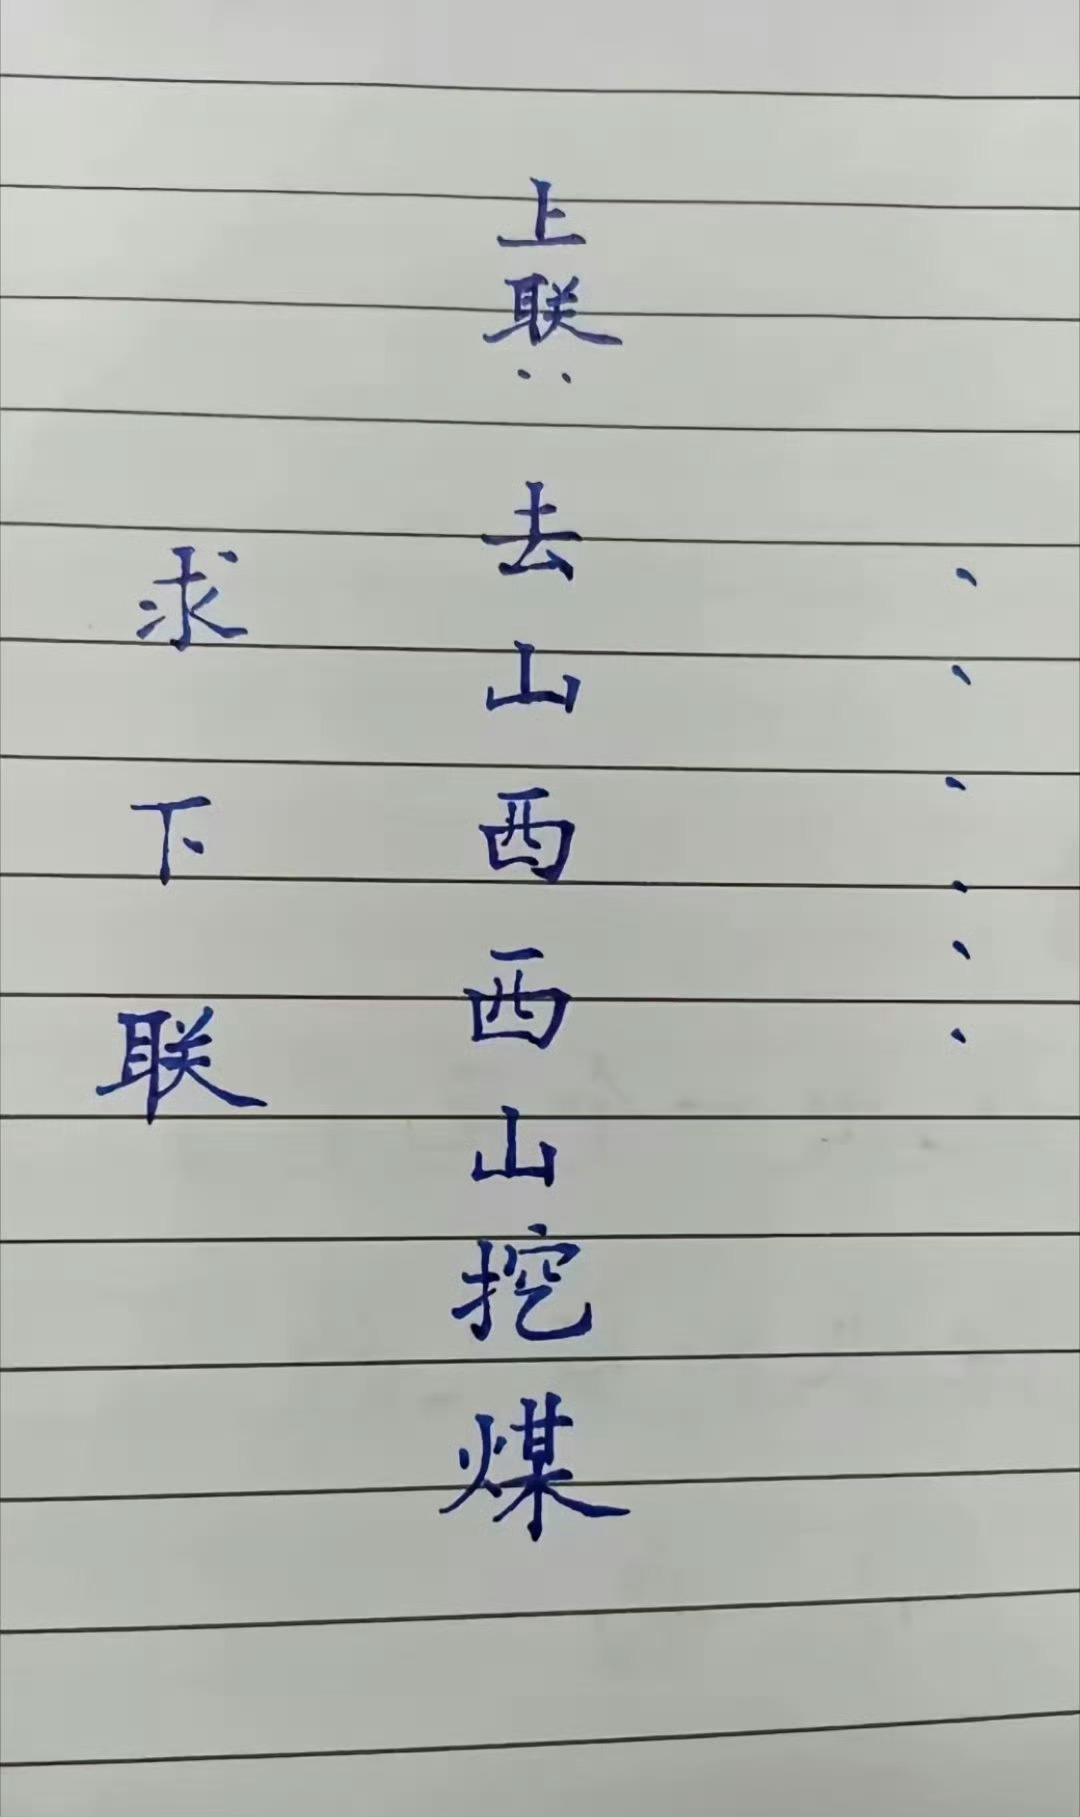 上联：去山西西山挖煤
求下联